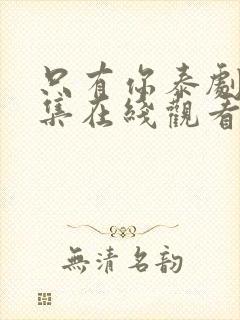 只有你泰劇
集在綫觀看
無清名韵